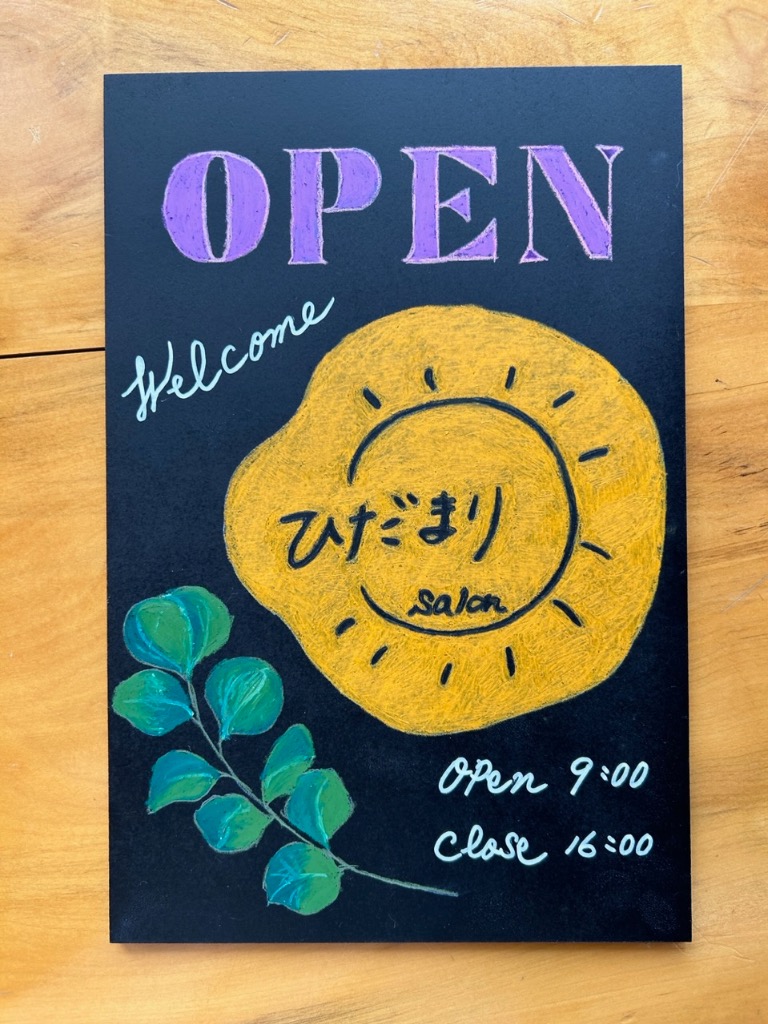 OPEN
Welcome
ひだまり
salon
OPen 9:00
Close 16:00